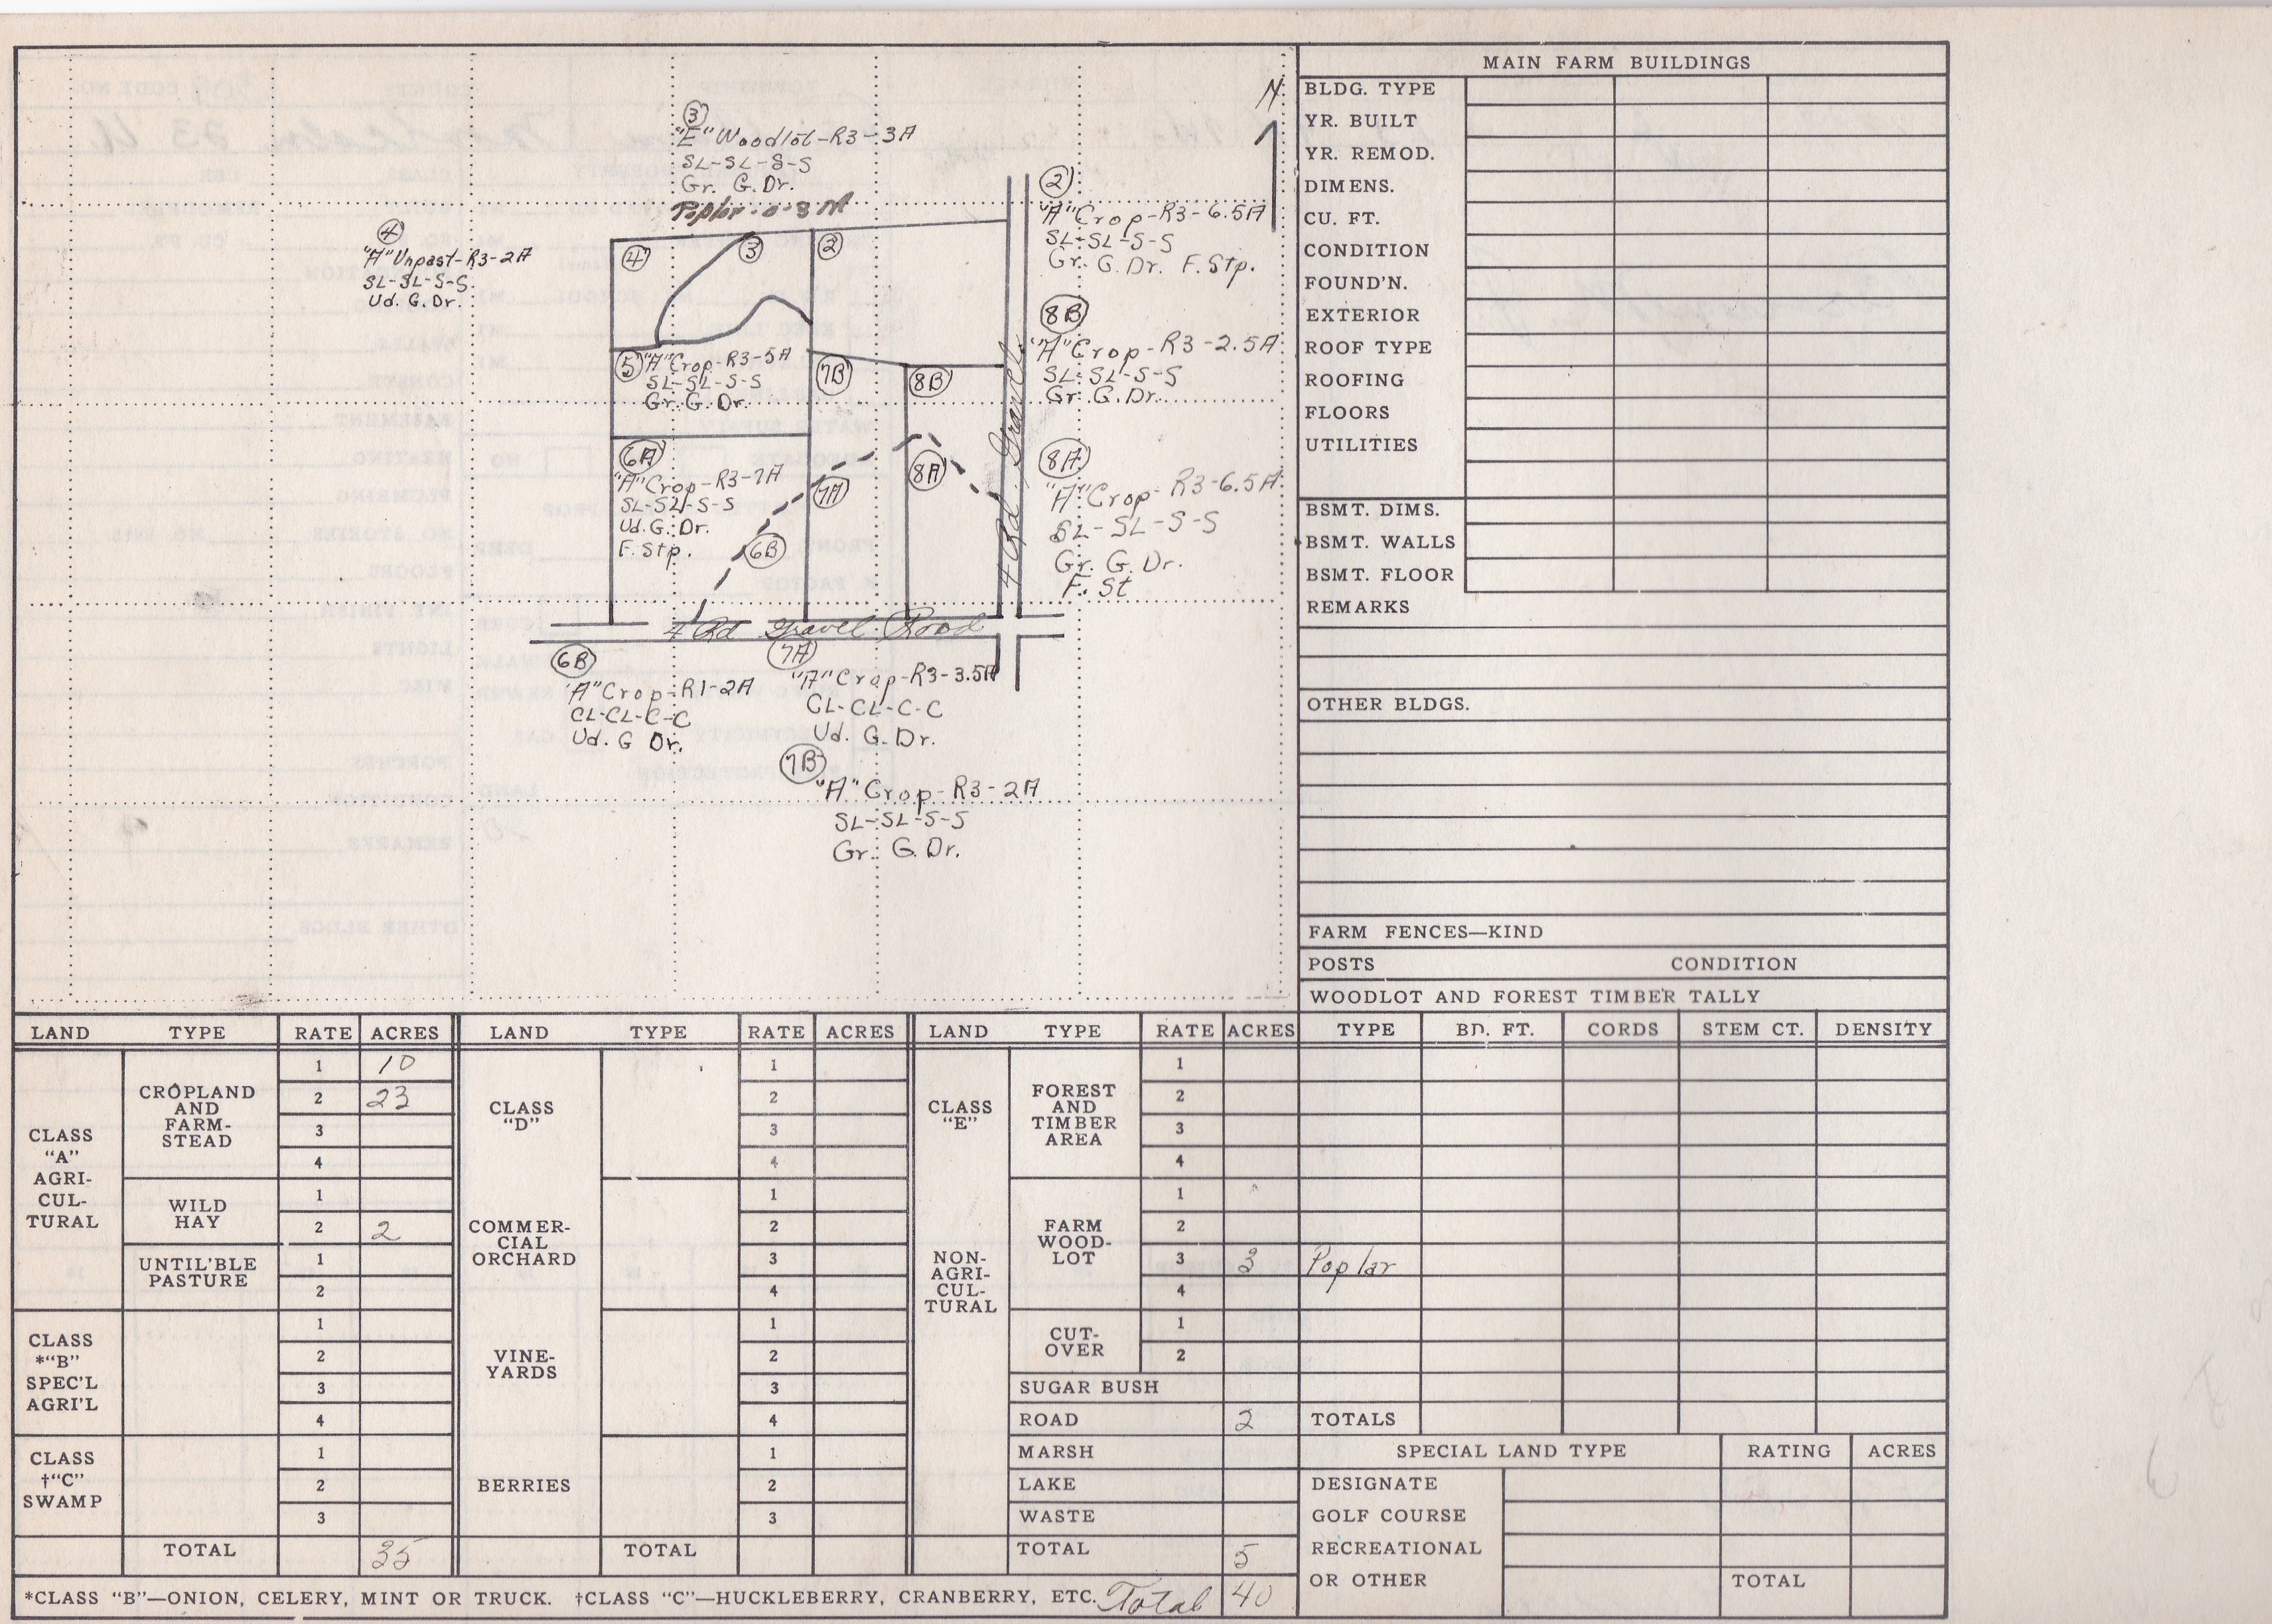 N
③
"E" Woodlot-R3-3A
SL-SL-S-S
Gr. G. Dr.
Poplar-0-8 M
④
"A" Unpast-R3-2A
SL-SL-S-S
Ud. G. Dr.
②
"A" Crop-R3-6.5A
SL-SL-S-S
Gr. G. Dr. F. Stp.
④ ③ ②
8B
"A" Crop-R3-2.5A
SL-SL-S-S
Gr. G. Dr.
⑤ "A" Crop-R3-5A
SL-SL-S-S
Gr. G. Dr.
7B 8B
6A
"A" Crop-R3-7A
SL-SL-S-S
Ud. G. Dr.
F. Stp.
6B 7A 8A
8A
"A" Crop-R3-6.5A
SL-SL-S-S
Gr. G. Dr.
F. St
4 Rd. Gravel
4 Rd Gravel Road
6B
"A" Crop-R1-2A
CL-CL-C-C
Ud. G Dr.
7A
"A" Crop-R3-3.5A
CL-CL-C-C
Ud. G. Dr.
7B
"A" Crop-R3-2A
SL-SL-S-S
Gr. G. Dr.
MAIN FARM BUILDINGS
BLDG. TYPE
YR. BUILT
YR. REMOD.
DIMENS.
CU. FT.
CONDITION
FOUND'N.
EXTERIOR
ROOF TYPE
ROOFING
FLOORS
UTILITIES
BSMT. DIMS.
BSMT. WALLS
BSMT. FLOOR
REMARKS
OTHER BLDGS.
FARM FENCES—KIND
POSTS CONDITION
WOODLOT AND FOREST TIMBER TALLY
TYPE BD. FT. CORDS STEM CT. DENSITY
Poplar
TOTALS
SPECIAL LAND TYPE RATING ACRES
DESIGNATE
GOLF COURSE
RECREATIONAL
OR OTHER TOTAL
LAND TYPE RATE ACRES
CLASS
"A"
AGRI-
CUL-
TURAL
CROPLAND
AND
FARM-
STEAD
1 10
2 23
3
4
WILD
HAY
1
2 2
UNTIL'BLE
PASTURE
1
2
CLASS
*"B"
SPEC'L
AGRI'L
1
2
3
4
CLASS
†"C"
SWAMP
1
2
3
TOTAL 35
LAND TYPE RATE ACRES
CLASS
"D"
1
2
3
4
COMMER-
CIAL
ORCHARD
1
2
3
4
VINE-
YARDS
1
2
3
4
BERRIES
1
2
3
TOTAL
LAND TYPE RATE ACRES
CLASS
"E"
NON-
AGRI-
CUL-
TURAL
FOREST
AND
TIMBER
AREA
1
2
3
4
FARM
WOOD-
LOT
1
2
3 3
4
CUT-
OVER
1
2
SUGAR BUSH
ROAD 2
MARSH
LAKE
WASTE
TOTAL 5
*CLASS "B"—ONION, CELERY, MINT OR TRUCK. †CLASS "C"—HUCKLEBERRY, CRANBERRY, ETC. Total 40